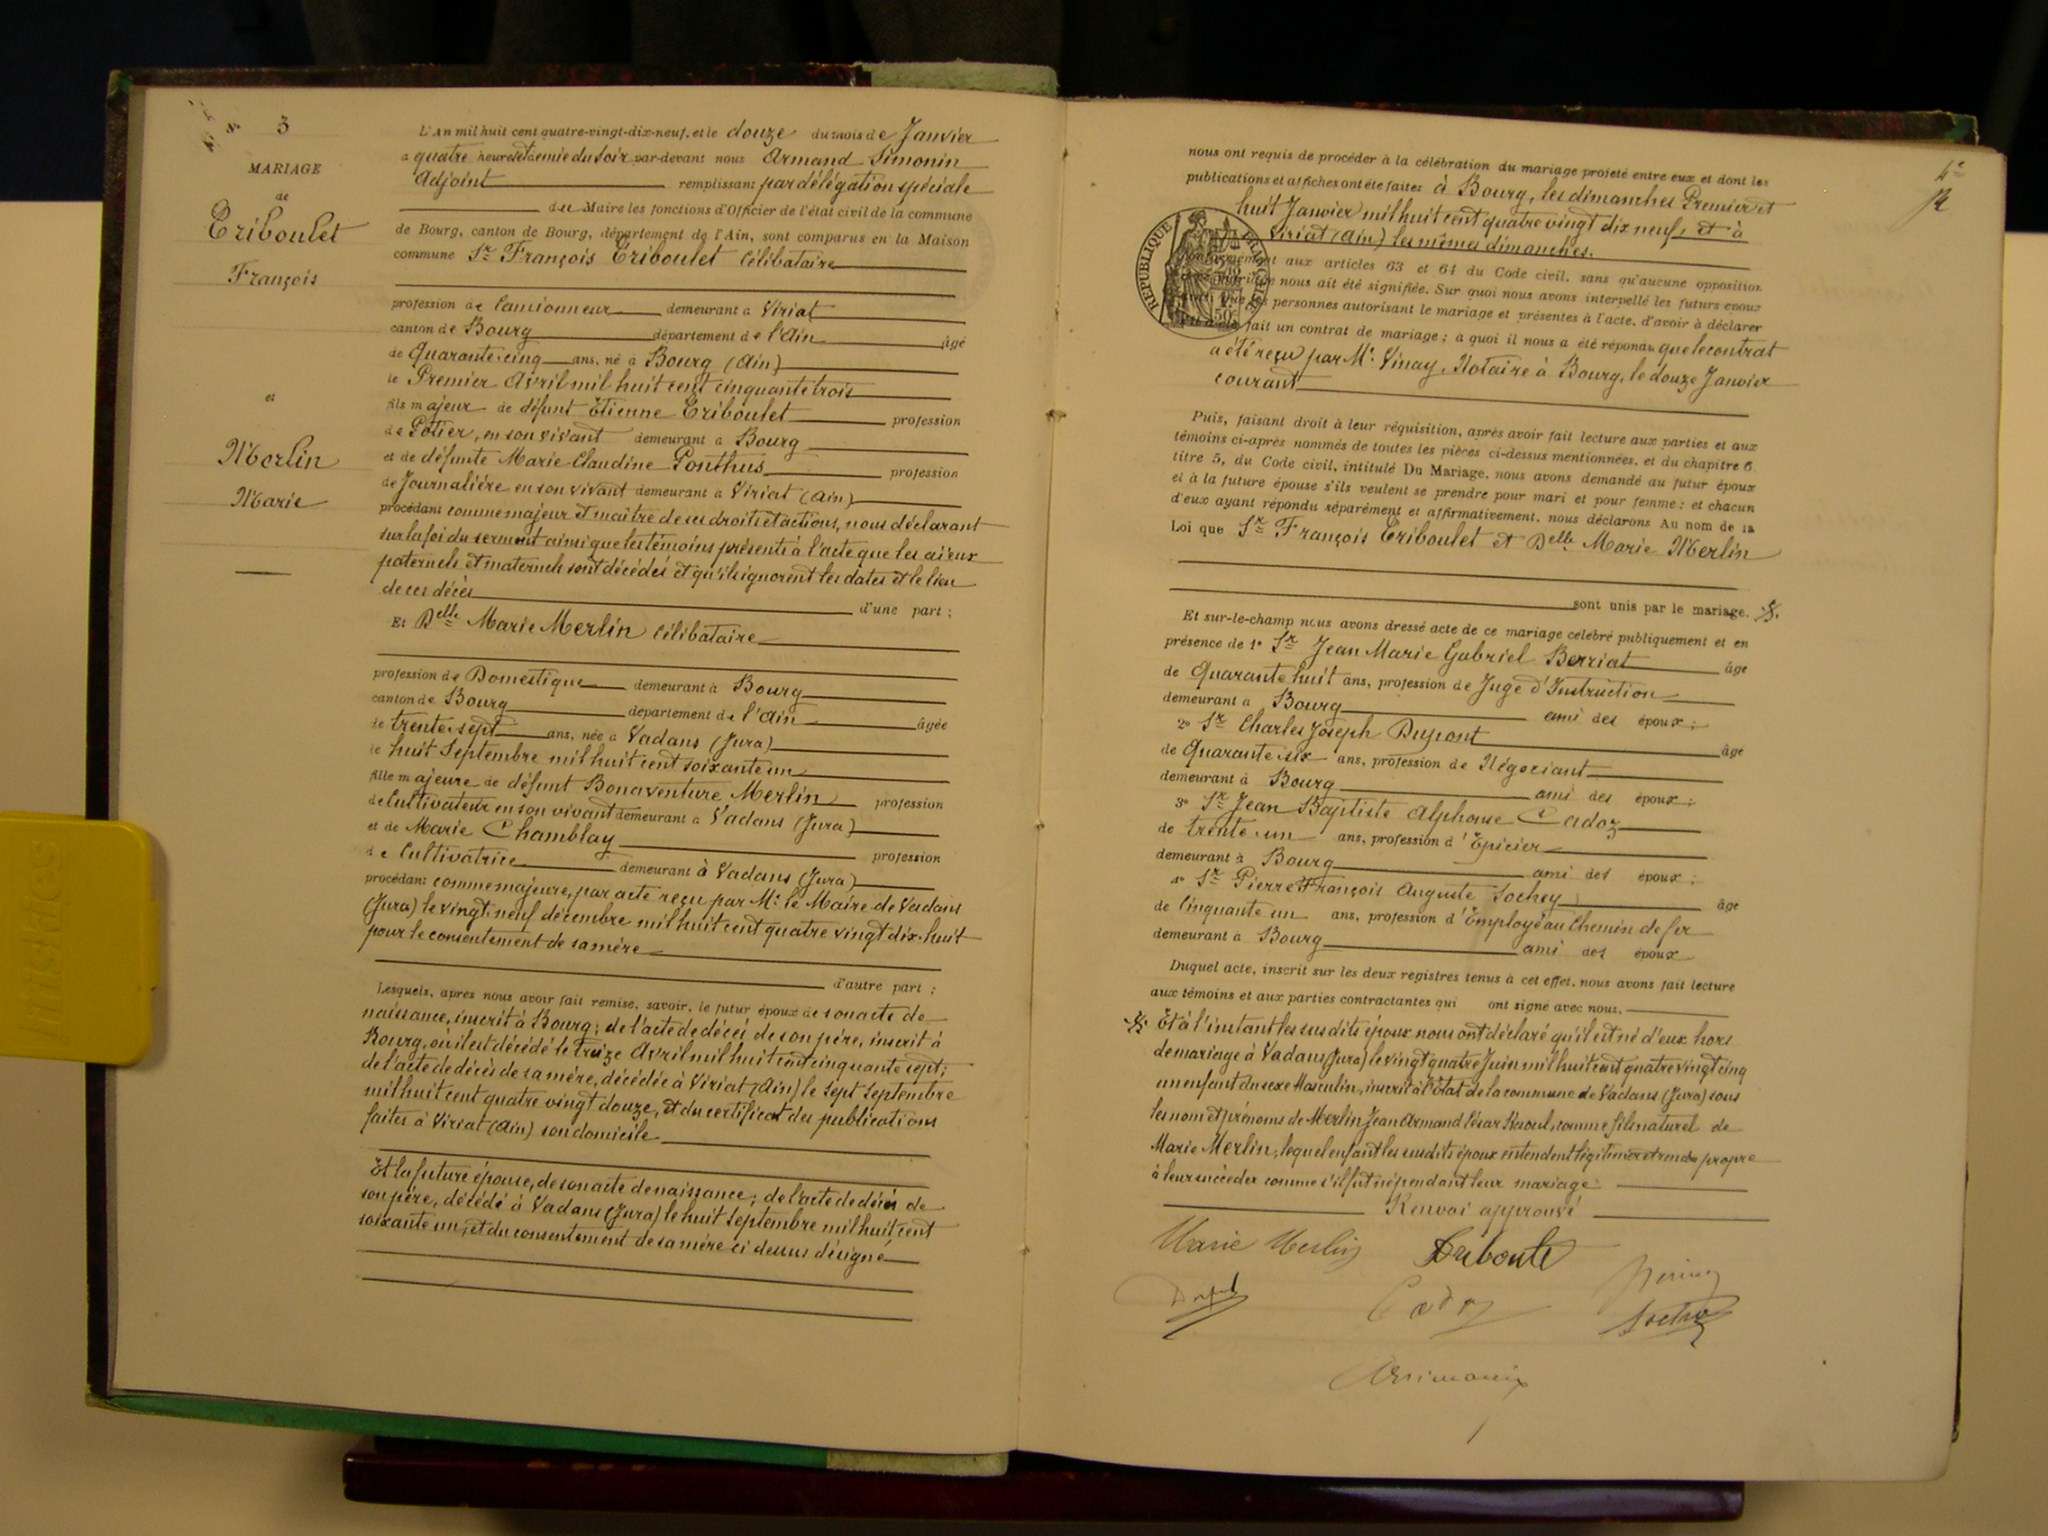 3
MARIAGE
de
Triboulet
François
et
Merlin
Marie
L'An mil huit cent quatre-vingt-dix-neuf, et le douze du mois de Janvier
a quatre heures et demie du soir par-devant nous Armand Simonin
Adjoint remplissant par délégation spéciale
du Maire les fonctions d'Officier de l'état civil de la commune
de Bourg, canton de Bourg, département de l'Ain, sont comparus en la Maison
commune Sr François Triboulet célibataire
profession de Camionneur demeurant à Viriat
canton de Bourg département de l'Ain âgé
de Quarante-cinq ans, né à Bourg (Ain)
le Premier Avril mil huit cent cinquante trois
fils majeur de défunt Etienne Triboulet profession
de Potier, en son vivant demeurant à Bourg
et de défunte Marie Claudine Ponthus profession
de Journalière en son vivant demeurant à Viriat (Ain)
procédant comme majeur et maître de ses droits et actions, nous déclarant
sur la foi du serment ainsi que les témoins présents à l'acte que les aïeux
paternels et maternels sont décédés et qu'ils ignorent les dates et le lieu
de ces décès d'une part ;
Et Delle Marie Merlin célibataire
profession de Domestique demeurant à Bourg
canton de Bourg département de l'Ain âgée
de trente-sept ans, née à Vadans (Jura)
le huit Septembre mil huit cent soixante un
fille majeure de défunt Bonaventure Merlin profession
de Cultivateur en son vivant demeurant à Vadans (Jura)
et de Marie Chamblay profession
de Cultivatrice demeurant à Vadans (Jura)
procédant comme majeure, par acte reçu par Mr le Maire de Vadans
(Jura) le vingt-neuf décembre mil huit cent quatre vingt dix-huit
pour le consentement de sa mère
d'autre part ;
Lesquels, après nous avoir fait remise, savoir, le futur époux de son acte de
naissance, inscrit à Bourg ; de l'acte de décès de son père, inscrit à
Bourg, où il est décédé le treize Avril mil huit cent cinquante sept ;
de l'acte de décès de sa mère, décédée à Viriat (Ain) le sept septembre
mil huit cent quatre vingt douze, et du certificat des publications
faites à Viriat (Ain) son domicile
Et la future épouse, de son acte de naissance ; de l'acte de décès de
son père, décédé à Vadans (Jura) le huit septembre mil huit cent
soixante un, et du consentement de sa mère ci dessus désigné
nous ont requis de procéder à la célébration du mariage projeté entre eux et dont les
publications et affiches ont été faites à Bourg, les dimanches Premier et
huit Janvier mil huit cent quatre vingt dix neuf, et à
Viriat (Ain) les mêmes dimanches.
REPUBLIQUE FRANÇAISE
50c
conformément aux articles 63 et 64 du Code civil, sans qu'aucune opposition
nous ait été signifiée. Sur quoi nous avons interpellé les futurs époux
personnes autorisant le mariage et présentes à l'acte, d'avoir à déclarer
fait un contrat de mariage ; à quoi il nous a été répondu que le contrat
a été reçu par Me Vinay, Notaire à Bourg, le douze Janvier
courant
Puis, faisant droit à leur réquisition, après avoir fait lecture aux parties et aux
témoins ci-après nommés de toutes les pièces ci-dessus mentionnées, et du chapitre 6
titre 5, du Code civil, intitulé Du Mariage, nous avons demandé au futur époux
et à la future épouse s'ils veulent se prendre pour mari et pour femme ; et chacun
d'eux ayant répondu séparément et affirmativement, nous déclarons Au nom de la
Loi que Sr François Triboulet et Delle Marie Merlin
sont unis par le mariage.
Et sur-le-champ nous avons dressé acte de ce mariage célébré publiquement et en
présence de 1° Sr Jean Marie Gabriel Berriat âgé
de Quarante huit ans, profession de Juge d'Instruction
demeurant à Bourg ami des époux ;
2° Sr Charles Joseph Dupont âgé
de Quarante-six ans, profession de Négociant
demeurant à Bourg ami des époux ;
3° Sr Jean Baptiste Alphonse Cadoz
de trente-un ans, profession d'Epicier
demeurant à Bourg ami des époux ;
4° Sr Pierre François Auguste Sochey âgé
de Cinquante un ans, profession d'Employé au Chemin de fer
demeurant à Bourg ami des époux
Duquel acte, inscrit sur les deux registres tenus à cet effet, nous avons fait lecture
aux témoins et aux parties contractantes qui ont signé avec nous.
Et à l'instant les susdits époux nous ont déclaré qu'il est né d'eux hors
de mariage à Vadans (Jura) le vingt quatre Juin mil huit cent quatre vingt cinq
un enfant du sexe Masculin, inscrit à l'état de la commune de Vadans (Jura) sous
les nom et prénoms de Merlin Jean Armand César Raoul, comme fils naturel de
Marie Merlin, lequel enfant les susdits époux entendent légitimer et rendre propre
à leur succéder comme s'il fut né pendant leur mariage
Renvoi approuvé
Marie Merlin Triboulet
Cadoz